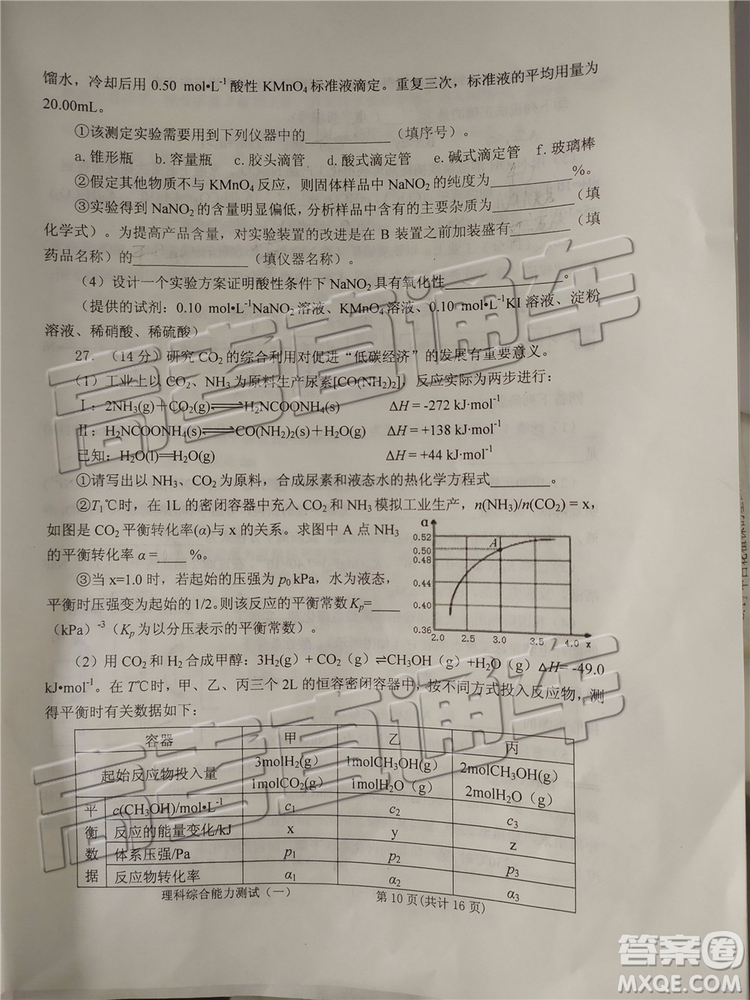 馏水，冷却后用 0.50 mol•L⁻¹酸性 KMnO₄标准液滴定。重复三次，标准液的平均用量为
20.00mL。
①该测定实验需要用到下列仪器中的__________（填序号）。
a. 锥形瓶 b. 容量瓶 c. 胶头滴管 d. 酸式滴定管 e. 碱式滴定管 f. 玻璃棒
②假定其他物质不与 KMnO₄反应，则固体样品中 NaNO₂的纯度为__________%。
③实验得到 NaNO₂的含量明显偏低，分析样品中含有的主要杂质为__________（填
化学式）。为提高产品含量，对实验装置的改进是在 B 装置之前加装盛有________（填
药品名称）的____________（填仪器名称）。
（4）设计一个实验方案证明酸性条件下 NaNO₂具有氧化性____________。
（提供的试剂：0.10 mol•L⁻¹NaNO₂溶液、KMnO₄溶液、0.10 mol•L⁻¹KI 溶液、淀粉
溶液、稀硝酸、稀硫酸）
27.（14 分）研究 CO₂的综合利用对促进“低碳经济”的发展有重要意义。
（1）工业上以 CO₂、NH₃为原料生产尿素[CO(NH₂)₂]，反应实际为两步进行：
Ⅰ：2NH₃(g)＋CO₂(g)⇌H₂NCOONH₄(s) ΔH = -272 kJ·mol⁻¹
Ⅱ：H₂NCOONH₄(s)⇌CO(NH₂)₂(s)＋H₂O(g) ΔH = +138 kJ·mol⁻¹
已知：H₂O(l)═H₂O(g) ΔH = +44 kJ·mol⁻¹
①请写出以 NH₃、CO₂为原料，合成尿素和液态水的热化学方程式__________。
②T₁℃时，在 1L 的密闭容器中充入 CO₂和 NH₃模拟工业生产，n(NH₃)/n(CO₂) = x，
如图是 CO₂平衡转化率(α)与 x 的关系。求图中 A 点 NH₃
的平衡转化率 α =____ %。
③当 x=1.0 时，若起始的压强为 p₀ kPa，水为液态，
平衡时压强变为起始的 1/2。则该反应的平衡常数 Kp=____
（kPa）⁻³（Kp为以分压表示的平衡常数）。
α
0.52
0.50
0.48
0.44
0.40
0.36
A
2.0 2.5 3.0 3.5 4.0 x
（2）用 CO₂和 H₂合成甲醇：3H₂(g)＋CO₂(g)⇌CH₃OH（g）+H₂O（g）ΔH= -49.0
kJ•mol⁻¹。在 T℃时，甲、乙、丙三个 2L 的恒容密闭容器中，按不同方式投入反应物，测
得平衡时有关数据如下：
容器 甲 乙 丙
起始反应物投入量 3molH₂(g) 1molCO₂(g) 1molCH₃OH(g) 1molH₂O（g） 2molCH₃OH(g) 2molH₂O（g）
平 c(CH₃OH)/mol•L⁻¹ c₁ c₂ c₃
衡 反应的能量变化/kJ x y z
数 体系压强/Pa p₁ p₂ p₃
据 反应物转化率 α₁ α₂ α₃
理科综合能力测试（一） 第 10 页(共计 16 页)
高考直通车
高考直通车
答案圈
MXQE.COM